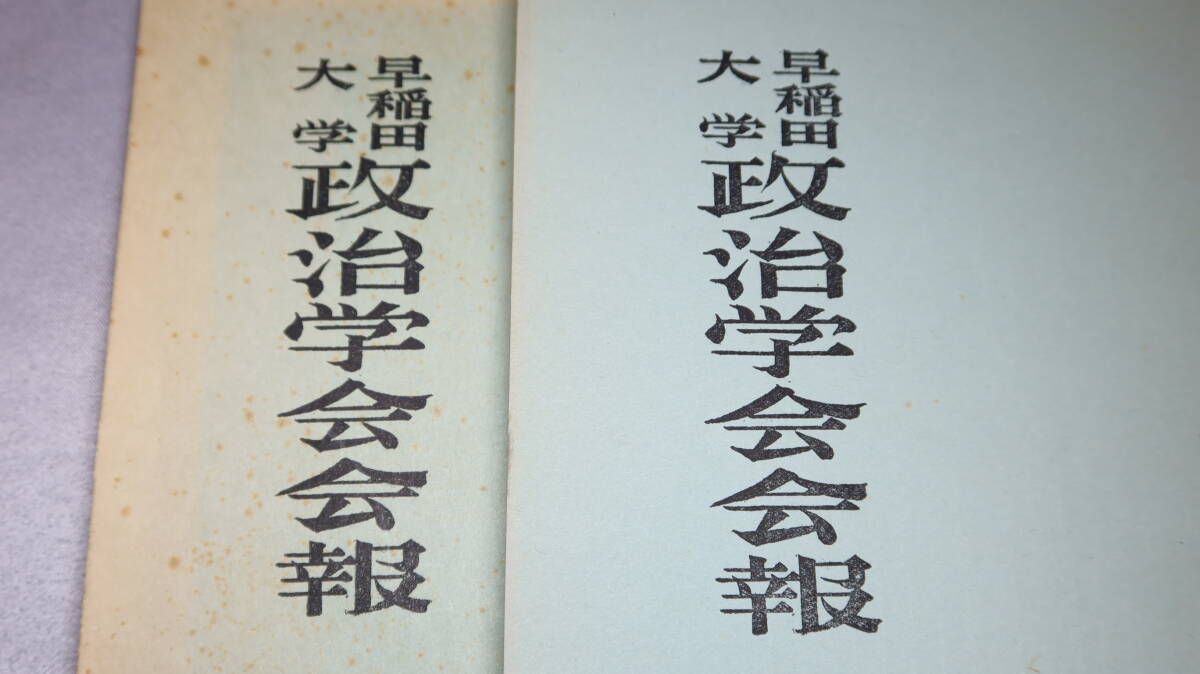 早稲田
大学
政治学会会報
早稲田
大学
政治学会会報